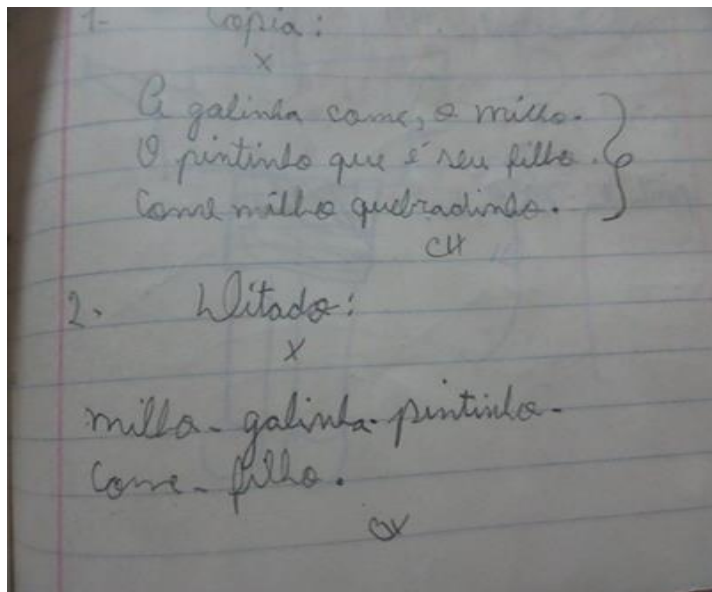 1- Cópia:
X
A galinha come, o milho.
O pintinho que é seu filho.
Come milho quebradinho.
2. Ditado:
X
milho - galinha - pintinho -
come - filho.